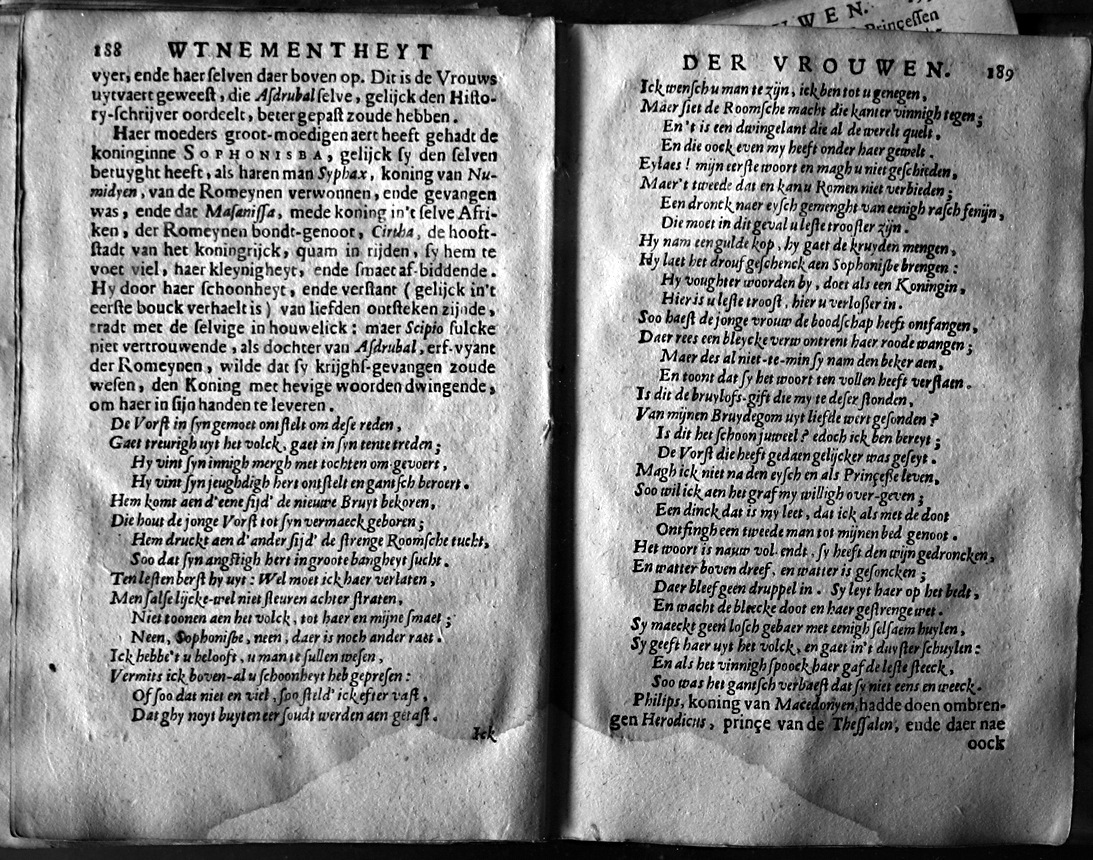 188 WTNEMENTHEYT
vyer, ende haer ſelven daer boven op. Dit is de Vrouws
uytvaert geweeſt, die Aſdrubal ſelve, gelijck den Hiſto-
ry-ſchrijver oordeelt, beter gepaſt zoude hebben.
Haer moeders groot-moedigen aert heeft gehadt de
koninginne SOPHONISBA, gelijck ſy den ſelven
betuyght heeft, als haren man Syphax, koning van Nu-
midyen, van de Romeynen verwonnen, ende gevangen
was, ende dat Maſaniſſa, mede koning in't ſelve Afri-
ken, der Romeynen bondt-genoot, Cirtha, de hooft-
ſtadt van het koningrijck, quam in rijden, ſy hem te
voet viel, haer kleynigheyt, ende ſmaet af-biddende.
Hy door haer ſchoonheyt, ende verſtant (gelijck in't
eerſte bouck verhaelt is) van liefden ontſteken zijnde,
tradt met de ſelvige in houwelick: maer Scipio ſulcke
niet vertrouwende, als dochter van Aſdrubal, erf-vyant
der Romeynen, wilde dat ſy krijghſ-gevangen zoude
weſen, den Koning met hevige woorden dwingende,
om haer in ſijn handen te leveren.
De Vorſt in ſyn gemoet ontſtelt om deſe reden,
Gaet treurigh uyt het volck, gaet in ſyn tente treden;
Hy vint ſyn innigh mergh met tochten om-gevoert,
Hy vint ſyn jeughdigh hert ontſtelt en gantſch beroert.
Hem komt aen d'eene ſijd' de nieuwe Bruyt bekoren,
Die hout de jonge Vorſt tot ſyn vermaeck geboren;
Hem druckt aen d'ander ſijd' de ſtrenge Roomſche tucht,
Soo dat ſyn angſtigh hert in groote bangheyt ſucht.
Ten leſten berſt hy uyt: Wel moet ick haer verlaten,
Men ſalſe lijcke-wel niet ſteuren achter ſtraten,
Niet toonen aen het volck, tot haer en mijne ſmaet;
Neen, Sophoniſbe, neen, daer is noch ander raet.
Ick hebbe't u belooft, u man te ſullen weſen,
Vermits ick boven-al u ſchoonheyt heb gepreſen:
Of ſoo dat niet en viel, ſoo ſteld' ick eſter vaſt,
Dat ghy noyt buyten eer ſoudt werden aen-getaſt.
Ick
DER VROUWEN. 189
Ick wenſch u man te zijn, ick ben tot u genegen,
Maer ſiet de Roomſche macht die kanter vinnigh tegen;
En't is een dwingelant die al de werelt quelt,
En die oock even my heeft onder haer gewelt.
Eylaes! mijn eerſte woort en magh u niet geſchieden,
Maer't tweede dat en kan u Romen niet verbieden;
Een dronck naer eyſch gemenght van eenigh raſch fenijn,
Die moet in dit geval u leſte trooſter zijn.
Hy nam een gulde kop, hy gaet de kruyden mengen,
Hy laet het drouf geſchenck aen Sophoniſbe brengen:
Hy voughter woorden by, doet als een Koningin,
Hier is u leſte trooſt, hier u verloſſer in.
Soo haeſt de jonge vrouw de boodſchap heeft ontfangen,
Daer rees een bleycke verw ontrent haer roode wangen;
Maer des al niet-te-min ſy nam den beker aen,
En toont dat ſy het woort ten vollen heeft verſtaen.
Is dit de bruylofs-gift die my te deſer ſtonden,
Van mijnen Bruydegom uyt liefde wert geſonden?
Is dit het ſchoon juweel? edoch ick ben bereyt;
De Vorſt die heeft gedaen gelijcker was geſeyt.
Magh ick niet na den eyſch en als Prinçeſſe leven,
Soo wil ick aen het graf my willigh over-geven;
Een dinck dat is my leet, dat ick als met de doot
Ontfingh een tweede man tot mijnen bed genoot.
Het woort is nauw vol-endt, ſy heeft den wijn gedroncken,
En watter boven dreef, en watter is geſoncken;
Daer bleef geen druppel in. Sy leyt haer op het bedt,
En wacht de bleecke doot en haer geſtrenge wet.
Sy maeckt geen loſch gebaer met eenigh ſelſaem huylen,
Sy geeft haer uyt het volck, en gaet in't duyſter ſchuylen:
En als het vinnigh ſpoock haer gaf de leſte ſteeck,
Soo was het gantſch verbaeſt dat ſy niet eens en weeck.
Philips, koning van Macedonyen, hadde doen ombren-
gen Herodicus, prinçe van de Theſſalen, ende daer nae
oock
UWEN.
Princeſſen